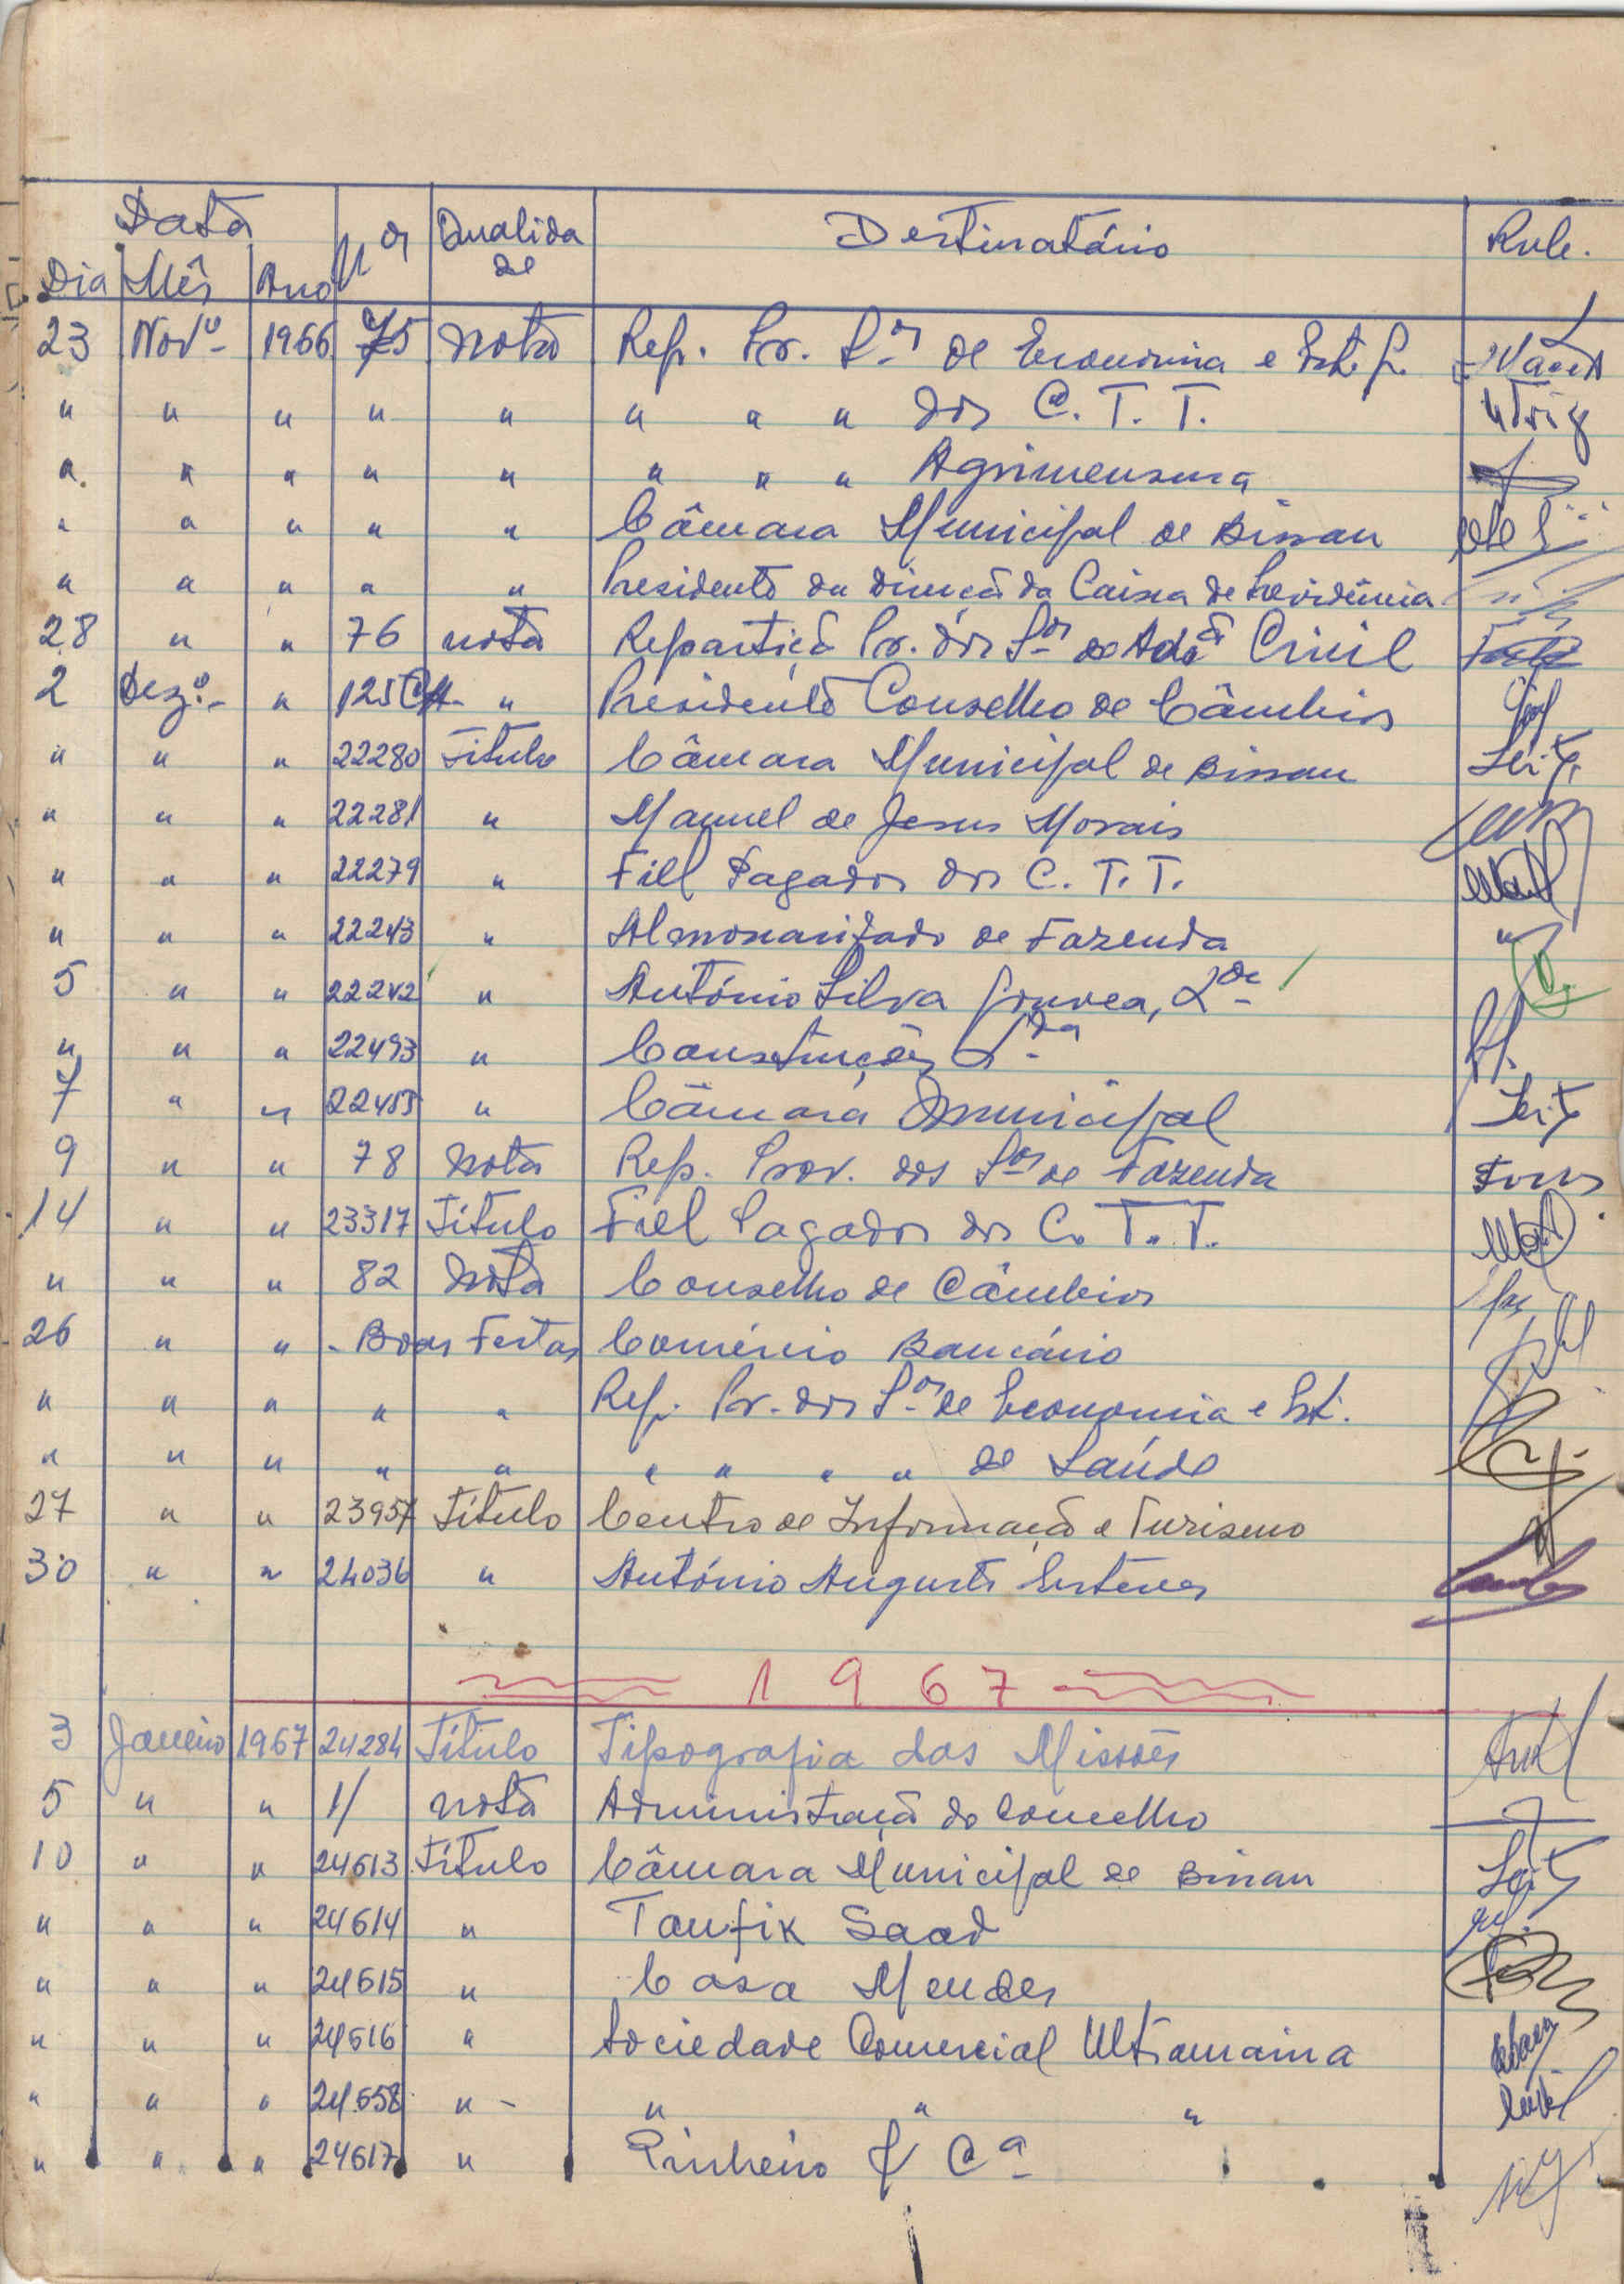 Data Nos Qualida Destinatário Rub.
Dia Mês Ano de
23 Novº 1966 75 Nota Rep. Pr. Sos de Economia e Est. G.
" " " " " " " " dos C. T. T.
" " " " " " " " Agrimensura
" " " " " Câmara Municipal de Bissau
" " " " " Presidente da Direcçã da Caixa de Previdência
28 " " 76 nota Repartiçã Pr. dos Sos de Admã Civil
2 Dezº " 125 " Presidente Conselho de Câmbios
" " " 22280 Titulo Câmara Municipal de Bissau
" " " 22281 " Manuel de Jesus Morais
" " " 22279 " Fiel Pagador dos C. T. T.
" " " 22243 " Almoxarifado de Fazenda
5 " " 22242 " António Silva Gouvea, Lda
" " " 22493 " Construções Lda
7 " " 22485 " Câmara Municipal
9 " " 78 Nota Rep. Prov. dos Sos de Fazenda
14 " " 23317 Título Fiel Pagador dos C. T. T.
" " " 82 Nota Conselho de Câmbios
26 " " - Boas Festas Comércio Bancário
" " " " " Rep. Pr. dos Sos de Economia e Est.
" " " " " " " " " de Saúde
27 " " 23957 Título Centro de Informação e Turismo
30 " " 24036 " António Augusto Esteves
1967
3 Janeiro 1967 24284 Título Tipografia das Missões
5 " " 1/ nota Administraçã do Concelho
10 " " 24613 Título Câmara Municipal de Bissau
" " " 24614 " Taufik Saad
" " " 24615 " Casa Mendes
" " " 24616 " Sociedade Comercial Ultramarina
" " " 24658 " - " " "
" " " 24617 " Pinheiro & Cª